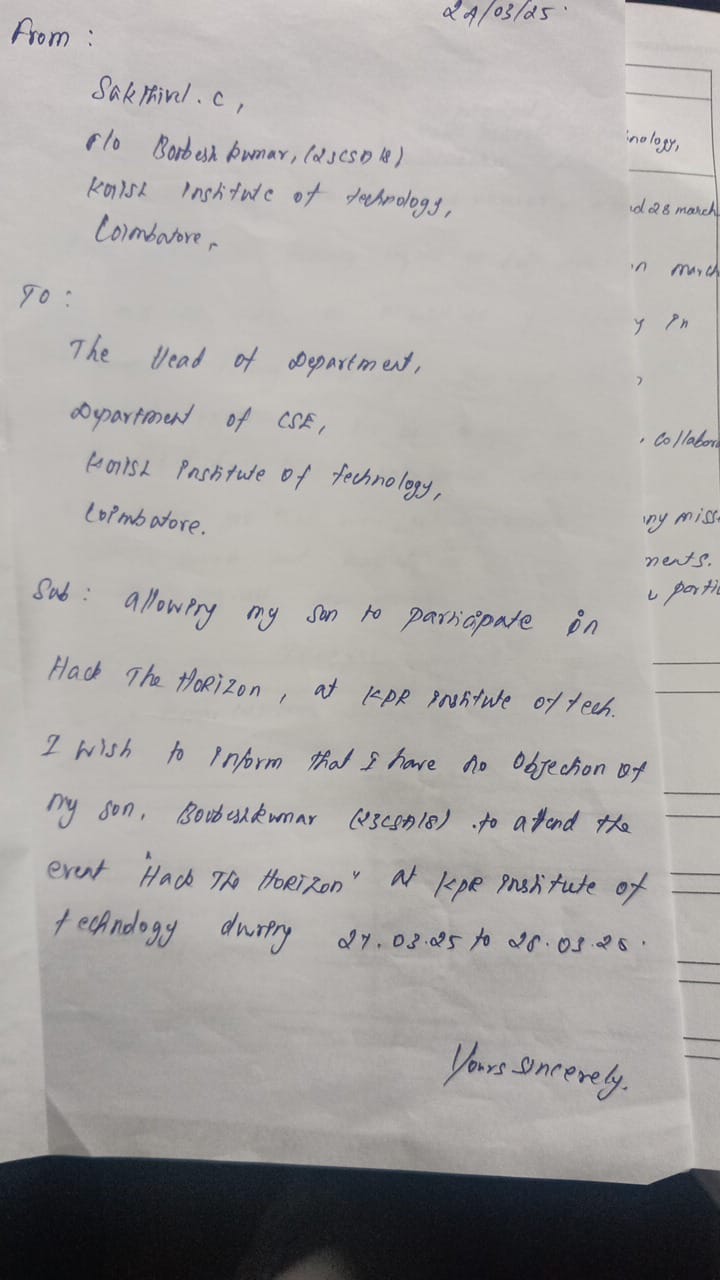 24/03/25.
From :
Sakthivel . C ,
F/o Boobesh kumar, (23CSD18)
Institute of technology,
Coimbatore,
To :
The Head of Department,
Department of CSE,
Institute of Technology,
Coimbatore.
Sub : allowing my son to participate in
Hack The HoRizon , at KPR institute of tech.
I wish to inform that I have no objection of
my son, Boobeshkumar (23CSD18) to attend the
event "Hack The HoRizon" at KPR institute of
technology during 27.03.25 to 28.03.25.
Yours sincerely.
inology,
nd 28 march
in march
y in
, collabor
any miss
ments.
parti